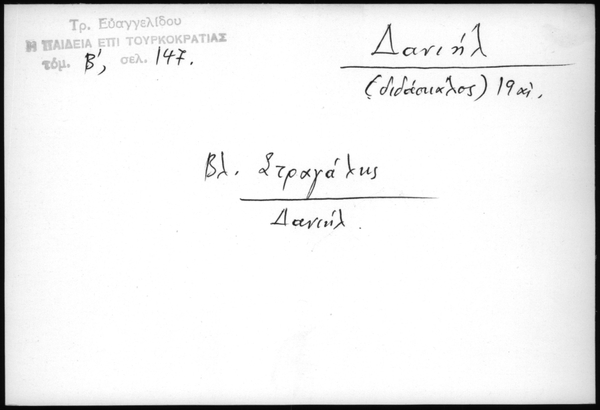 Τρ. Εὐαγγελίδου
Η ΠΑΙΔΕΙΑ ΕΠΙ ΤΟΥΡΚΟΚΡΑΤΙΑΣ
τόμ. Β', σελ. 147.
Δανιήλ
(διδάσκαλος) 19 αἰ.
Βλ. Στραγάλης
Δανιήλ.